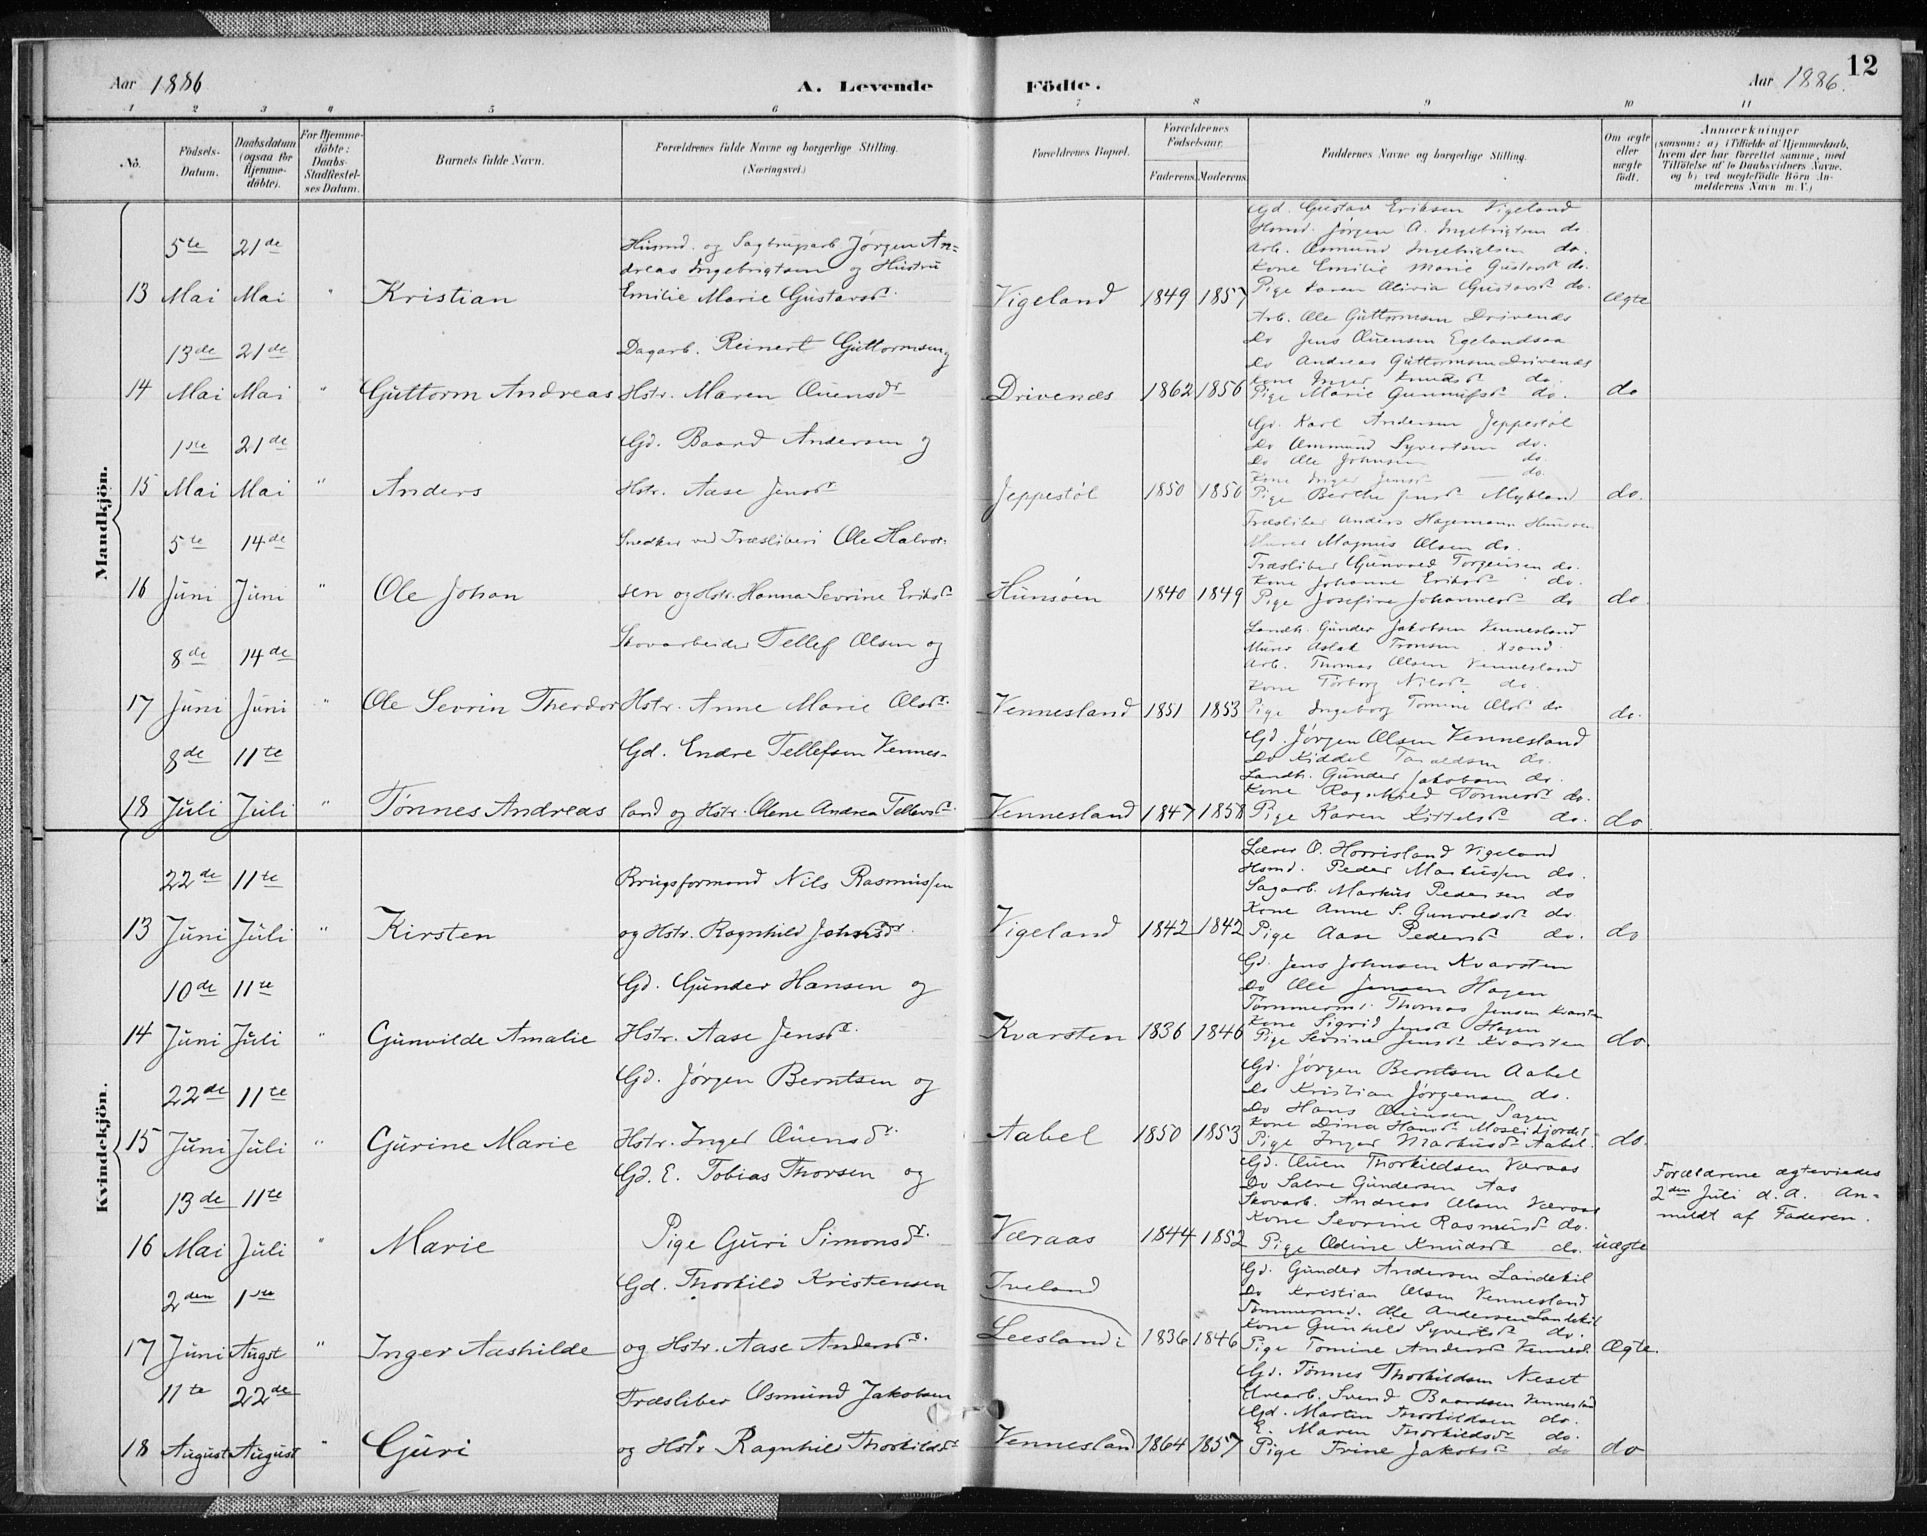 Aar 1886
A. Levende
Födte.
Aar 1886.
12
1 2 3 4 5 6 7 8 9 10 11
No.
Födsels-Datum.
Daabsdatum (ogsaa for Hjemme-döbte).
For Hjemme-döbte: Daabs-Stadfæstel-ses Datum.
Barnets fulde Navn.
Forældrenes fulde Navne og borgerlige Stilling. (Næringsvei.)
Forældrenes Bopæl.
Forældrenes Födselsaar.
Faderens. Moderens.
Faddernes Navne og borgerlige Stilling.
Om ægte eller uægte födt.
Anmærkninger
(saasom: a) i Tilfælde af Hjemmedaab, hvem der har forrettet samme, med Tilföielse af to Daabsvidners Navne, og b) ved uegtefödte Börn An-melderens Navn m. V.)
Mandkjön.
13 5te Mai 21de Mai " Kristian
Husmd. og Sagbrugsarb. Jørgen An=
dreas Ingebrigtsen og Hustru
Emilie Marie Gustavsdr.
Vigeland 1849 1857
Gd. Gustav Eriksen Vigeland
Husmd. Jørgen A. Ingebrigtsen do.
Arb. Osmund Ingebrigtsen do.
Kone Emilie Marie Gustavsdr do.
Pige Karen Olivia Gustavsdr do.
Ægte
14 13de Mai 21de Mai " Guttorm Andreas
Dagarb. Reinert Guttormsen og
Hstr. Maren Ouensdr
Drivenæs 1862 1856
Arb. Ole Guttormsen Drivenæs
Do Jens Ouensen Egelandsaa
Do Andreas Guttormsen Drivenæs
Kone Inger Knudsdr do.
Pige Marie Gunnufsdr do.
do
15 1ste Mai 21de Mai " Anders
Gd. Baard Andersen og
Hstr. Aase Jensdr
Jeppestøl 1850 1850
Gd. Karl Andersen Jeppestøl
Do Ommund Syvertsen do.
Do Ole Johnsen do.
Kone Inger Jensdr do.
Pige Berthe Jensdr Mykland
do.
16 5te Juni 14de Juni " Ole Johan
Snedker ved Træsliberi Ole Halvor-
sen og Hstr. Hanna Sevrine Eriksdr
Hunsøen 1840 1849
Træsliber Anders Hagemann Hunsøen
Murer Magnus Olsen do.
Træsliber Gunvald Torgersen do.
Kone Johanne Eriksdr do.
Pige Josefine Johannesdr do
do.
17 8de Juni 14de Juni " Ole Sevrin Theodor
Skovarbeider Tellef Olsen og
Hstr. Anne Marie Olsdr.
Vennesland 1851 1853
Landh. Gunder Jakobsen Vennesland
Murer Aslak Tronsen Xsand
Arb. Thomas Olsen Vennesland
Kone Torborg Nilsdr do.
Pige Ingeborg Tomine Olsdr do
do.
18 8de Juli 11te Juli " Tønnes Andreas
Gd. Endre Tellefsen Vennes-
land og Hstr. Olene Andrea Tellevsdr.
Vennesland 1847 1858
Gd. Jørgen Olsen Vennesland
Do Kiddel Taraldsen do.
Landh. Gunder Jakobsen do.
Kone Ragnhild Tønnesdr do.
Pige Karen Kittelsdr do.
do
Kvindekjön.
13 22de Juni 11te Juli " Kirsten
Brugsformand Nils Rasmussen
og Hstr. Ragnhild Johnsdr.
Vigeland 1842 1842
Lærer O. Horrisland Vigeland
Husmd. Peder Markussen do.
Sagarb. Markus Pedersen do
Kone Anne S. Gunvaldsdr do
Pige Aase Pedersdr do.
do
14 10de Juni 11te Juli " Gunvilde Amalie
Gd. Gunder Hansen og
Hstr. Aase Jensdr.
Kvarsten 1836 1846
Gd. Jens Johnsen Kvarsten
Do Ole Jensen Hagen
Tømmerm. Thomas Jensen Kvarsten
Kone Sigrid Jensdr Hagen
Pige Sevrine Jensdr Kvarsten
do.
15 22de Juni 11te Juli " Gurine Marie
Gd. Jørgen Berntsen og
Hstr. Inger Ouensdr.
Aabel 1850 1853
Gd. Jørgen Berntsen Aabel
Do Kristian Jørgensen do.
Do Hans Ouensen Sagen
Kone Dina Hansdr Moseidjordet
Pige Inger Markusdr Aabel
do.
16 13de Mai 11te Juli " Marie
Gd. E. Tobias Thorsen og
Pige Guri Simonsdr.
Væraas 1844 1852
Gd. Ouen Thorkildsen Væraas
Do Salve Gundersen Aas
Skovarb. Andreas Olsen Væraas
Kone Sevrine Rasmusdr do.
Pige Odine Knudsdr do.
uægte
Forældrene ægteviedes
2den Juli d. A. An=
meldt af Faderen.
17 2den Juni 1ste Augst " Inger Aashilde
Gd. Thorkild Kristensen
og Hstr. Aase Andersdr.
Iveland
Leesland: 1836 1846
Gd. Gunder Andersen Landekil
Do Kristian Olsen Vennesland
Tømmermd. Ole Andersen Landekil
Kone Gunhild Syvertsdr do.
Pige Tomine Andersdr Vennesl.
Ægte.
18 11te August 22de August " Guri
Træsliber Osmund Jakobsen
og Hstr Ragnhild Thorkildsdr
Vennesland 1864 1857
Gd. Tønnes Thorkildsen Neset
Elvearb. Svend Baardsen Vennesland
Gd. Martin Thorkildsen do.
E. Maren Thorkildsdr do.
Pige Trine Jakobsdr do
do